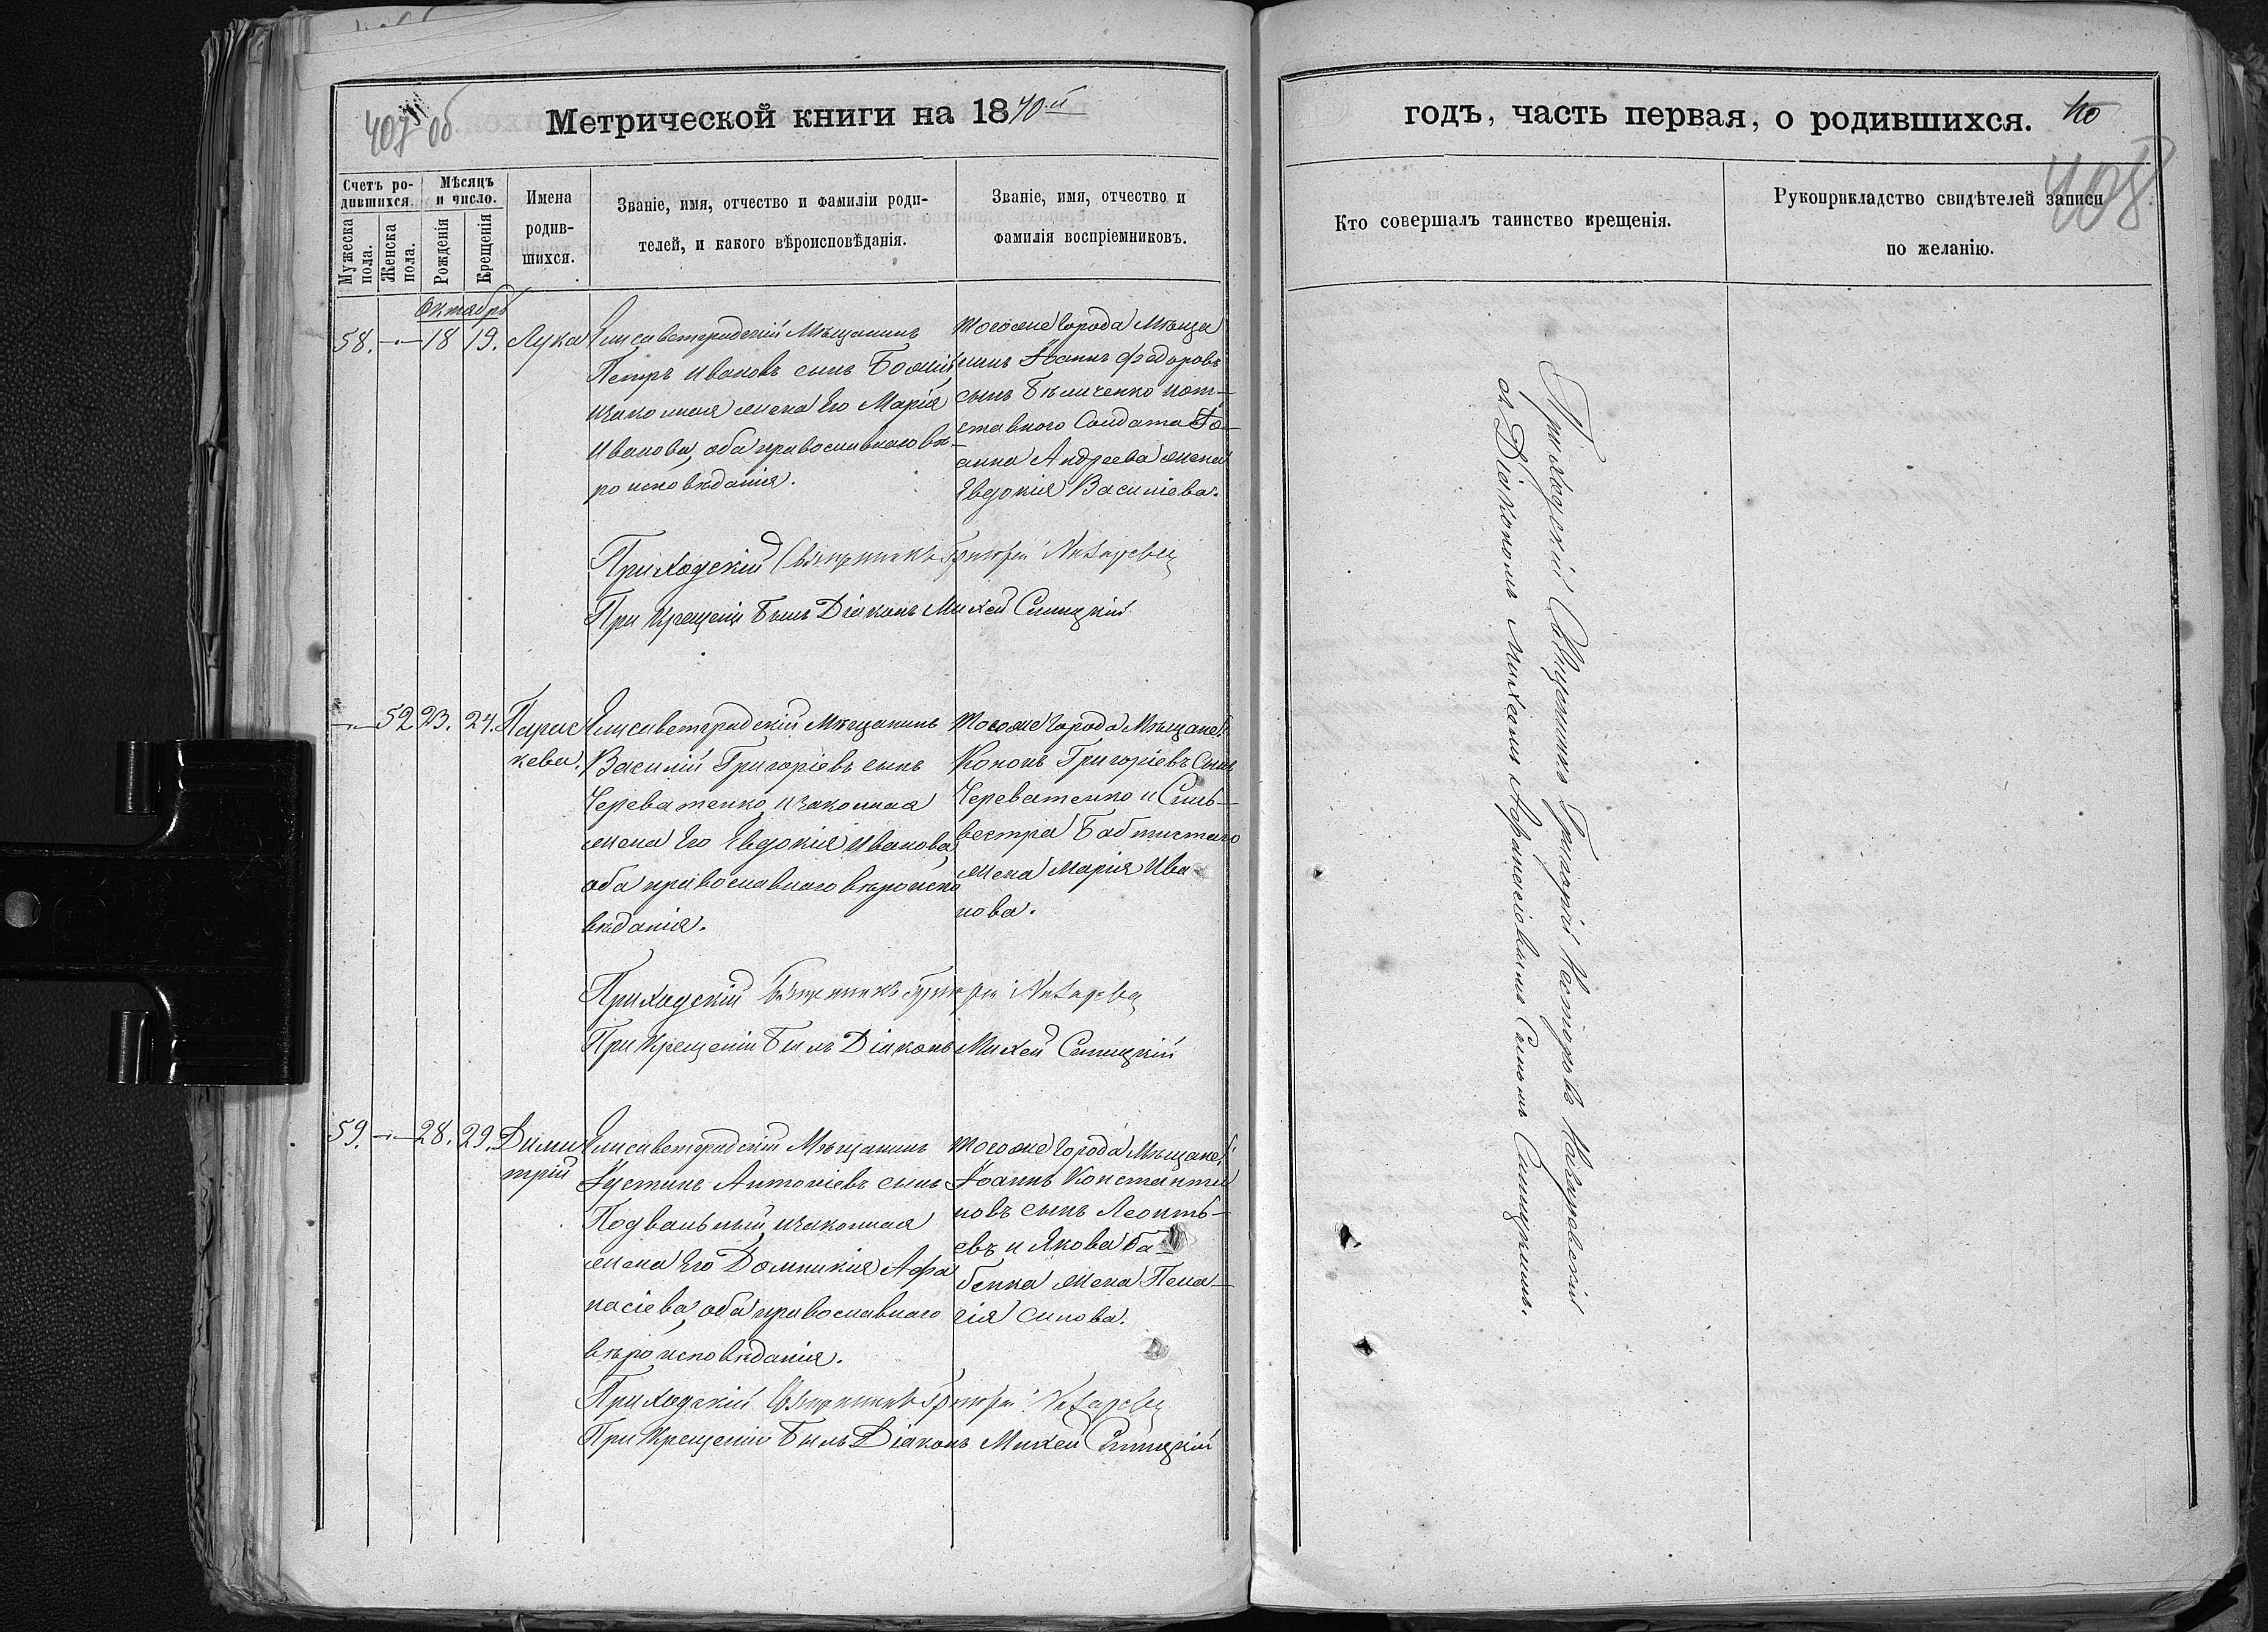 407 об
Метрической книги на 1870й
Счетъ ро-
дившихся.
Мѣсяцъ
и число.
Мужеска
пола.
Женска
пола.
Рожденія
Крещенія
Имена
родив-
шихся.
Званіе, имя, отчество и фамиліи роди-
телей, и какого вѣроисповѣданія.
Званіе, имя, отчество и
фамилія воспріемниковъ.
Октябрь
58. — 18 19. Лука
Елисаветградскій Мѣщанинъ
Петръ Ивановъ сынъ
изаконная жена Его Марія
Иванова, оба православнаго вѣ-
роисповѣданія.
тогоже города Мѣща
нинъ Іоаннъ Федоровъ
сынъ Бѣличенко иот-
ставного Солдата Іо-
анна Андреева жена
Евдокія Василіева.
Приходскій Священникъ Григорій
При Крещеніи Былъ Діаконъ Михей Синицкій
— 52 23. 24. Парас
кева.
Елисаветградскій Мѣщанинъ
Василій Григоріевъ сынъ
Череватенко изаконная
жена Его Евдокія Иванова,
оба православнаго вѣроиспо
вѣданія.
тогоже города Мѣщане:
Кононъ Григоріевъ Сынъ
Череватенко и Силь-
вестра
жена Марія Ива-
нова.
Приходскій Священникъ Григорій
При Крещеніи Былъ Діаконъ Михей Синицкій
59. — 28. 29. Дими
трій
Елисаветградскій Мѣщанинъ
Іустинъ Антоніевъ сынъ
Подвальный изаконная
жена Его Домникія Афа
насіева, оба православнаго
вѣроисповѣданія.
тогоже города Мѣщане:
Іоаннъ Константи
новъ сынъ Леонть-
евъ и Якова Ба-
бенка жена Пела-
гія
Приходскій Священникъ Григорій
При Крещеніи Былъ Діаконъ Михей Синицкій
годъ, часть первая, о родившихся.
408
Кто совершалъ таинство крещенія.
Рукоприкладство свидѣтелей записи
по желанію.
Приходскій Священникъ Григорій
съ Діакономъ Михеемъ Афанасіевымъ Сыномъ Синицкимъ.